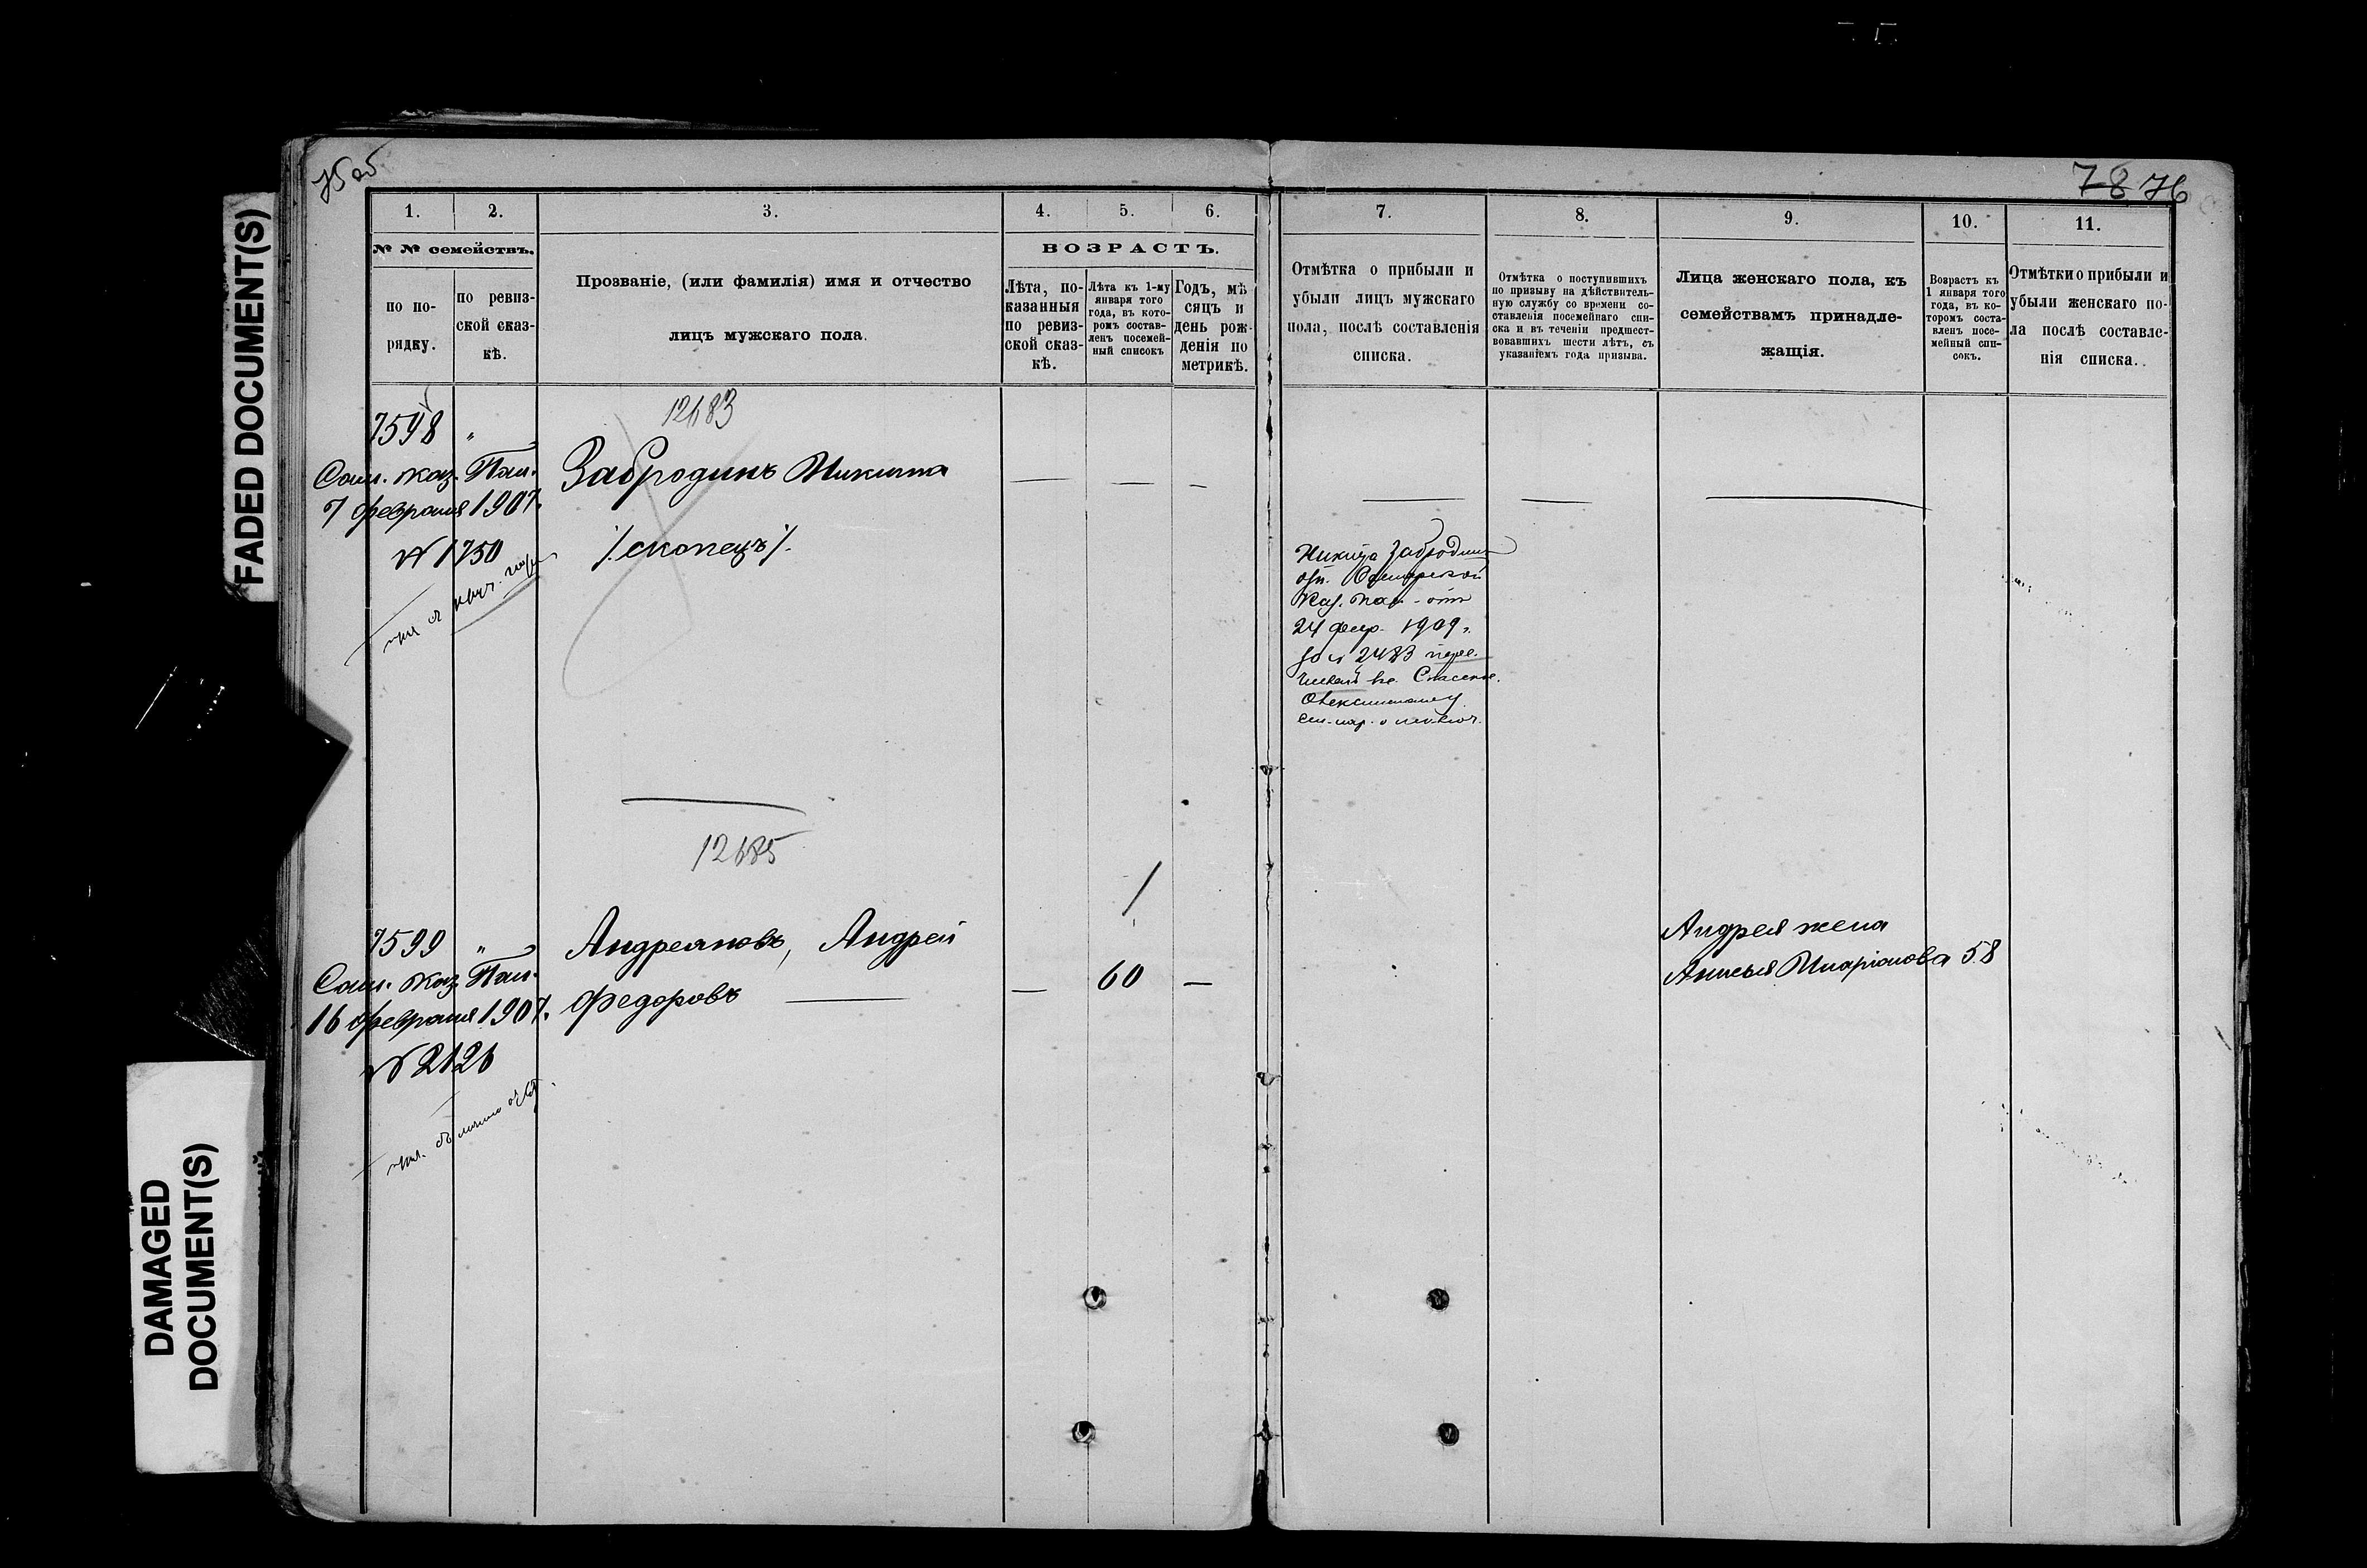 FADED DOCUMENT(S)
DAMAGED
DOCUMENT(S)
75 об
78 76
1.
2.
3.
4.
5.
6.
7.
8.
9.
10.
11.
№ № семействъ.
по по-
рядку.
по ревиз-
ской сказ-
кѣ.
Прозваніе, (или фамилія) имя и отчество
лицъ мужскаго пола.
ВОЗРАСТЪ.
Лѣта, по-
казанныя
по ревиз-
ской сказ-
кѣ.
Лѣта къ 1-му
января того
года, въ кото-
ромъ состав-
ленъ посемей-
ный списокъ
Годъ, мѣ
сяцъ и
день рож-
денія по
метрикѣ.
Отмѣтка о прибыли и
убыли лицъ мужскаго
пола, послѣ составленія
списка.
Отмѣтка о поступившихъ
по призыву на дѣйствитель-
ную службу со времени со-
ставленія посемейнаго спи-
ска и въ теченіи предшест-
вовавшихъ шести лѣтъ, съ
указаніемъ года призыва.
Лица женскаго пола, къ
семействамъ принадле-
жащія.
Возрастъ къ
1 января того
года, въ ко-
торомъ соста-
вленъ посе-
мейный спи-
сокъ.
Отмѣтки о прибыли и
убыли женскаго по-
ла послѣ составле-
нія списка.
12683
7598 „
Сам. Каз. Пал.
7 февраля 1907.
№ 1750
Забродинъ Никита
/.скопецъ/.
Никита Забродинъ
Самарской
Каз. Пал. отъ
24 февр. 1909 г.
за № 2483 пере-
12685
7599 „
Сам. Каз. Пал.
16 февраля 1907.
№ 2126
Андреяновъ, Андрей
Федоровъ
60
Андрея жена
Анисья Иларіонова 58